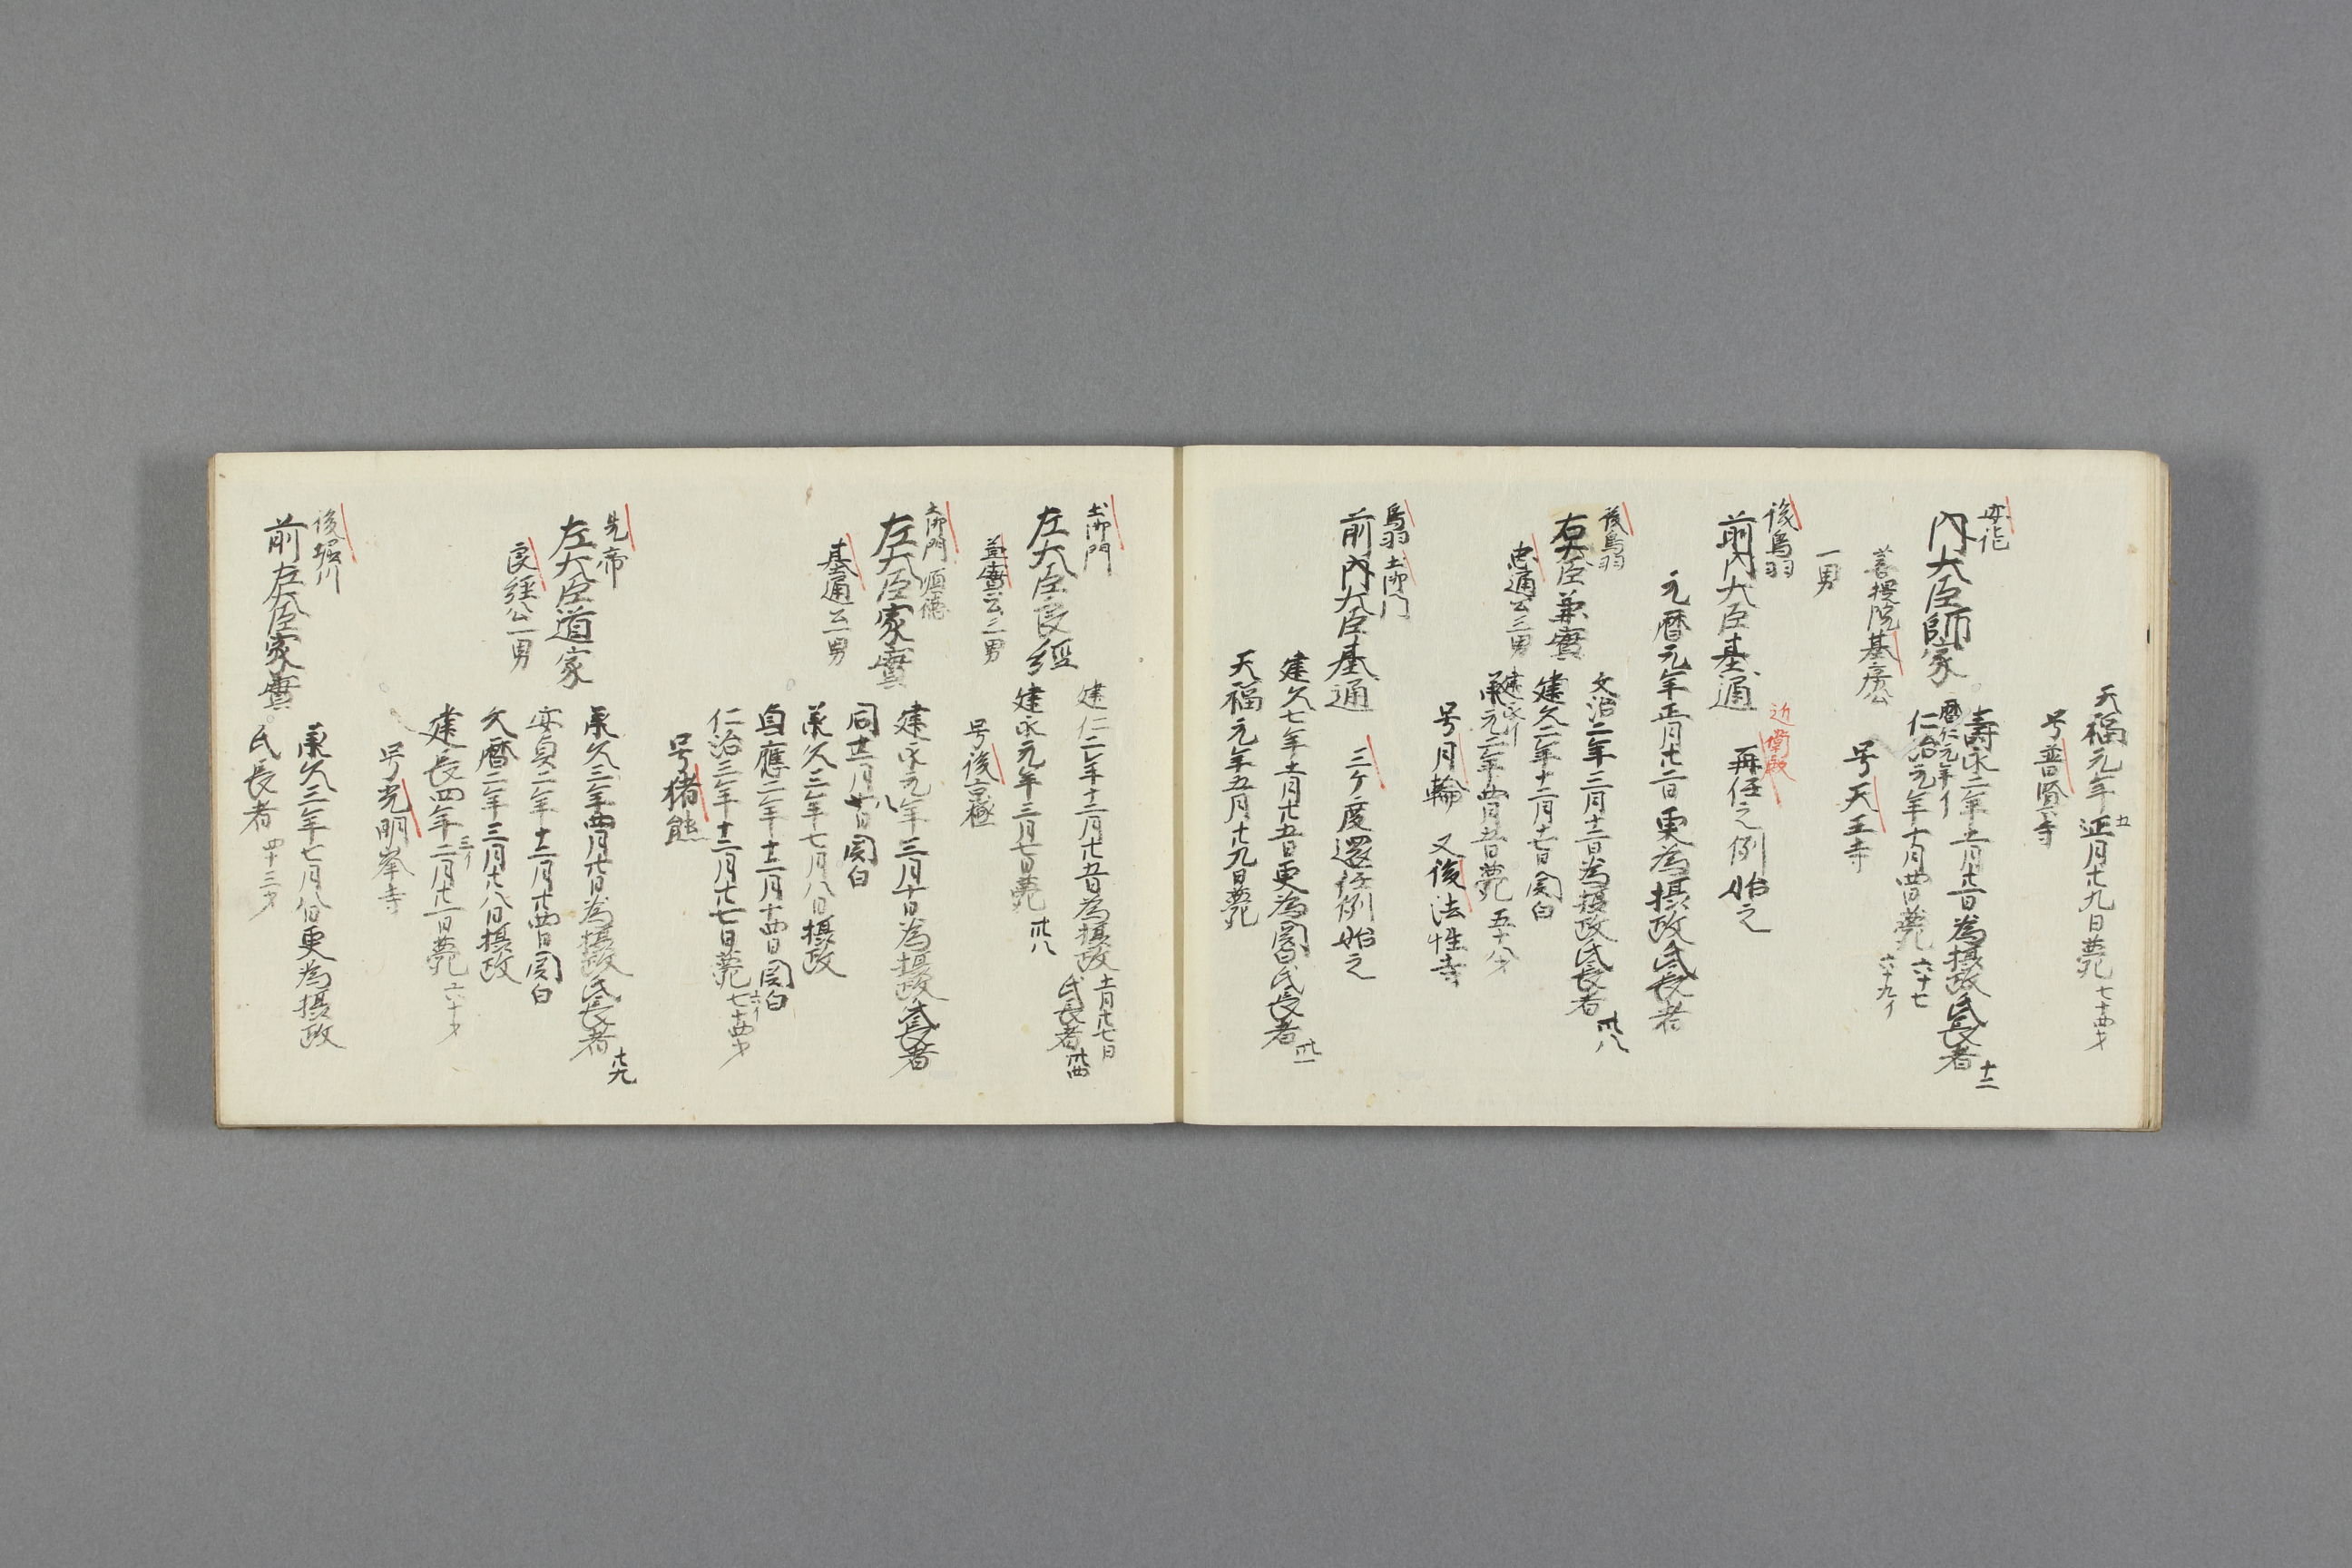 天福元年正月廿九日薨 七十四才
五
号普賢寺
安徳
内大臣師家
壽永二年十一月廿一日為摂政氏長者 十二
暦仁元年イ
仁治元年十月四日薨 六十七
六十九イ
菩提院基房公
一男
号天王寺
後鳥羽
前内大臣基通
近衛殿
再任之例始之
元暦元年正月廿二日更為摂政氏長者
後鳥羽
右大臣兼實
忠通公三男
文治二年三月十二日為摂政氏長者 卅八
建久二年十二月十七日関白
建永イ
承元元年四月五日薨 五十八才
号月輪 又後法性寺
鳥羽 土御门
前内大臣基通
三ケ度還任例始之
建久七年十一月廿五日更為関白氏長者 卅一
天福元年五月廿九日薨
土御門
左大臣良經
兼實公二男
建仁二年十二月廿五日為摂政
十一月廿七日
氏長者 卅四
建永元年三月七日薨 卅八
号後京極
土御門 順徳
左大臣家實
基通公一男
建永元年三月十日為摂政氏長者
同十二月廿八日関白
承久三年七月八日摂政
貞應二年十二月十四日関白
仁治三年十二月廿七日薨 七十四才
六イ
号猪熊
先帝
左大臣道家
良經公一男
承久三年四月廿日為摂政氏長者 廿九
安貞二年十二月廿四日関白
文暦二年三月廿八日摂政
建長四年二月廿一日薨 六十才
三イ
号光明峯寺
後堀川
前左大臣家實
承久三年七月八日更為摂政
氏長者 四十三才